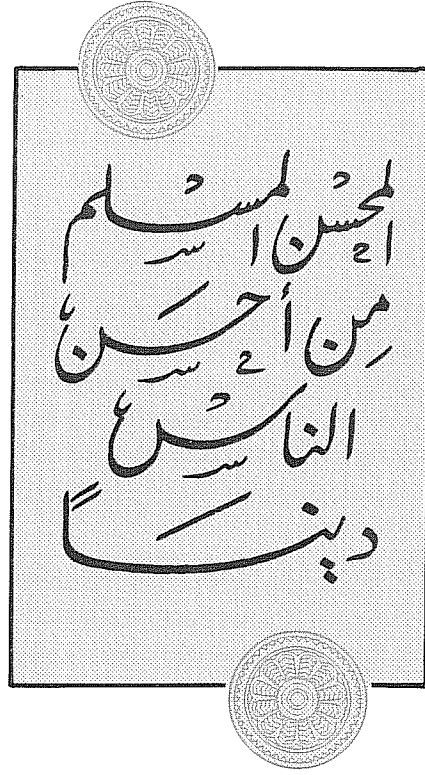 المحسن المسلم
مِن أحسَن
الناس
دينـَاً